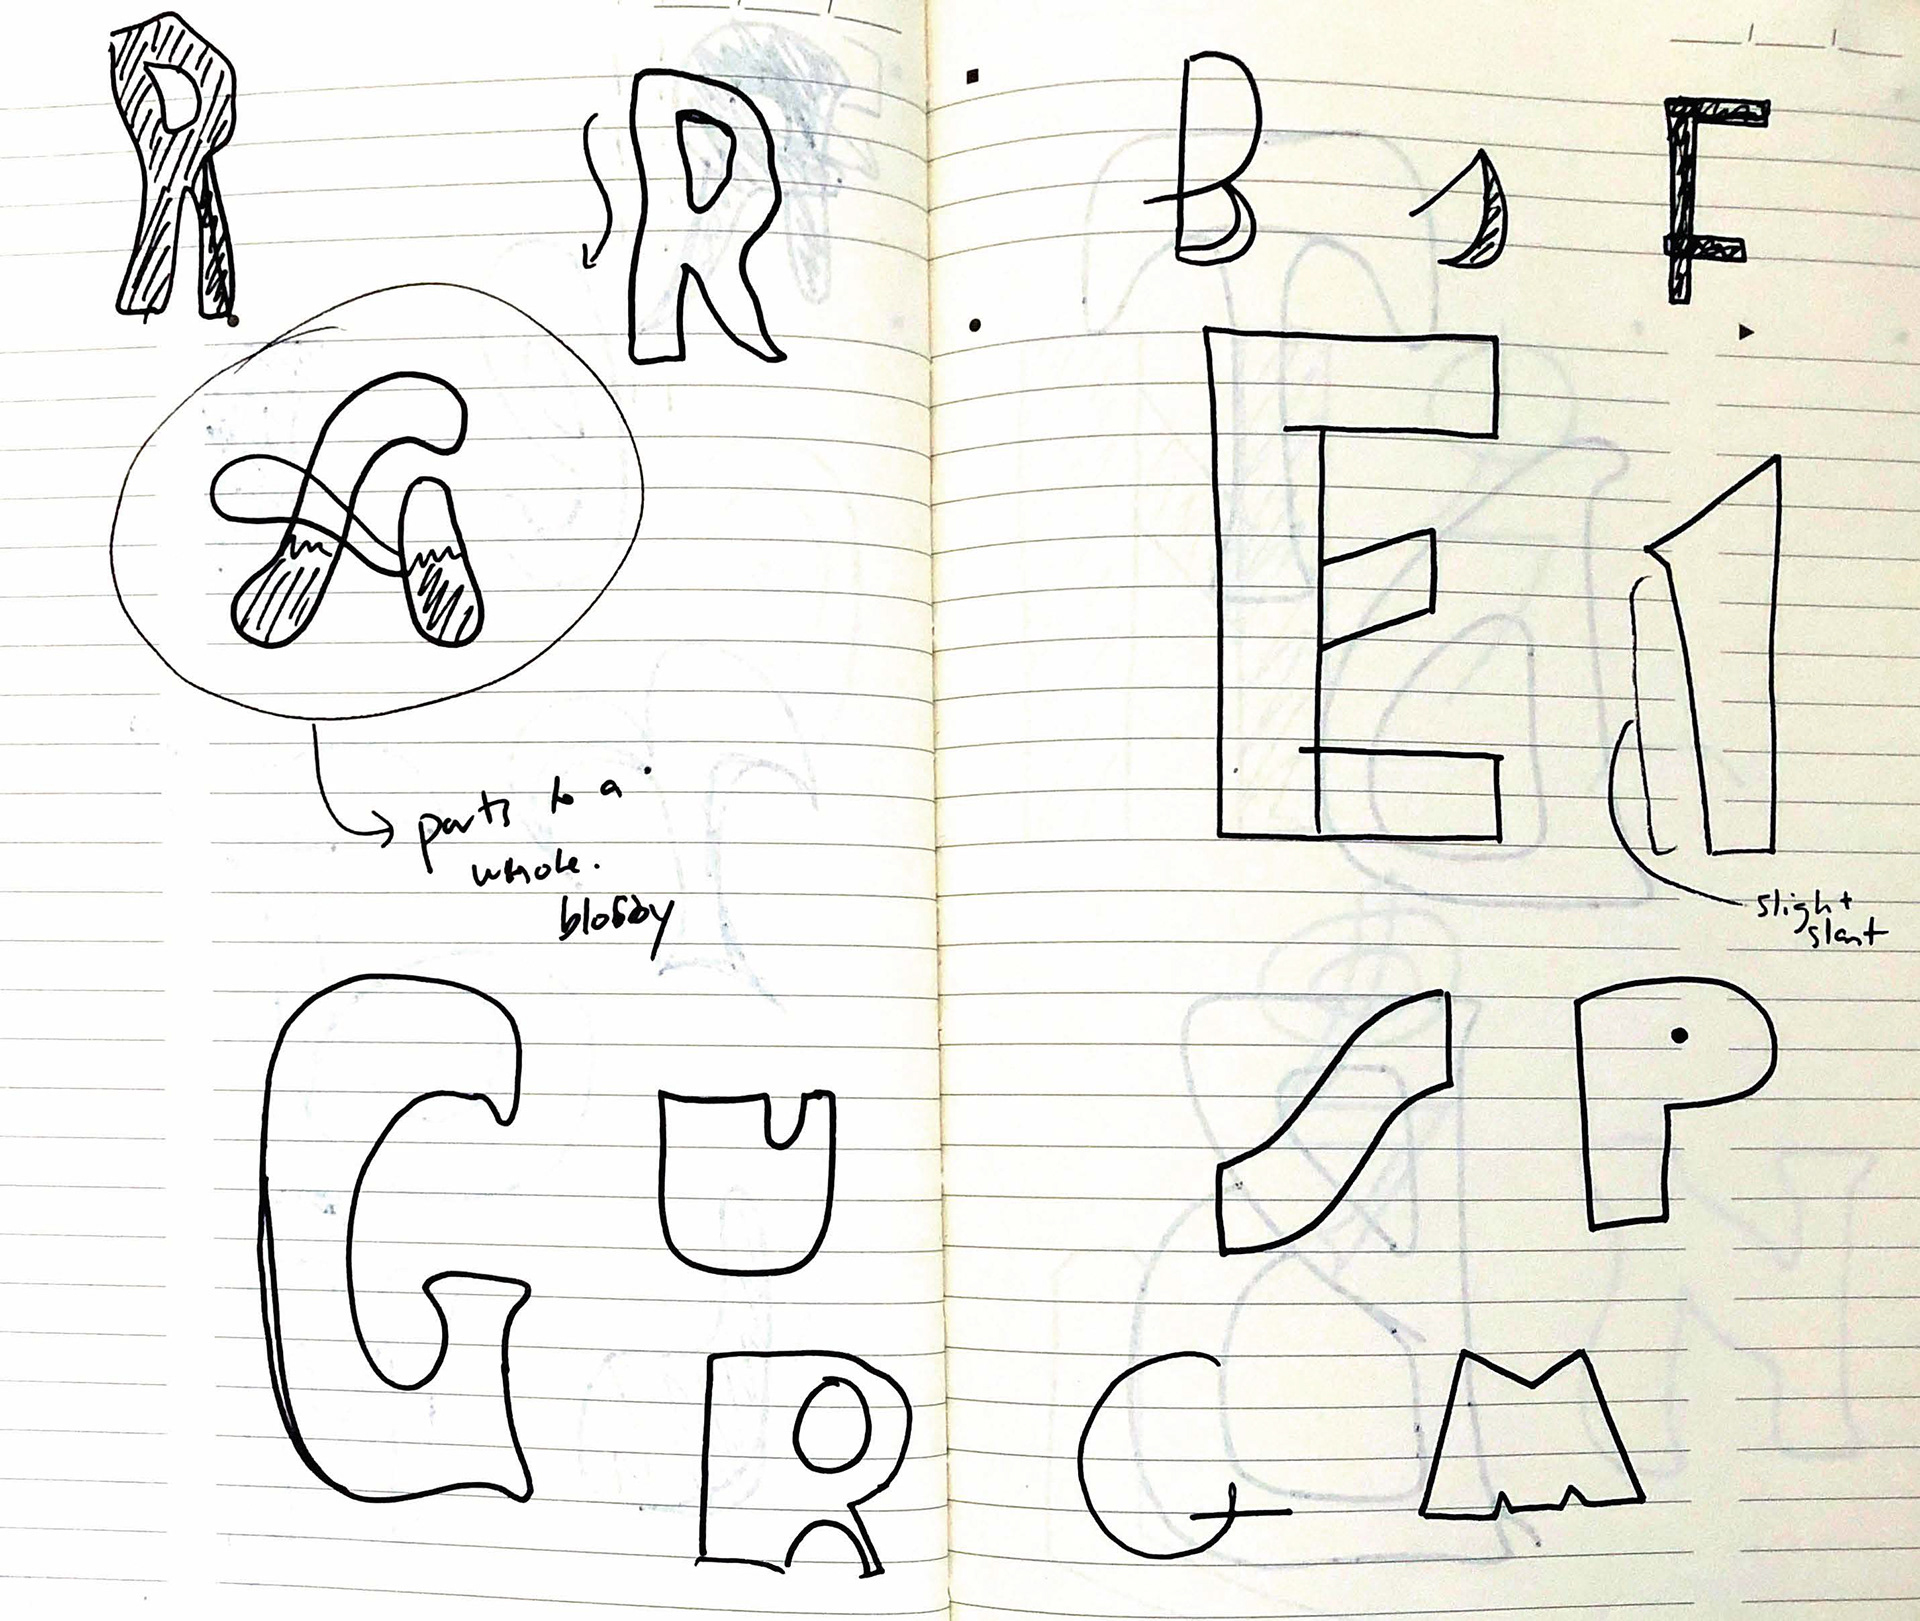 R
R
A
parts to a
whole.
blobby
G
U
R
B
E
E
1
slight
slant
P
G
M